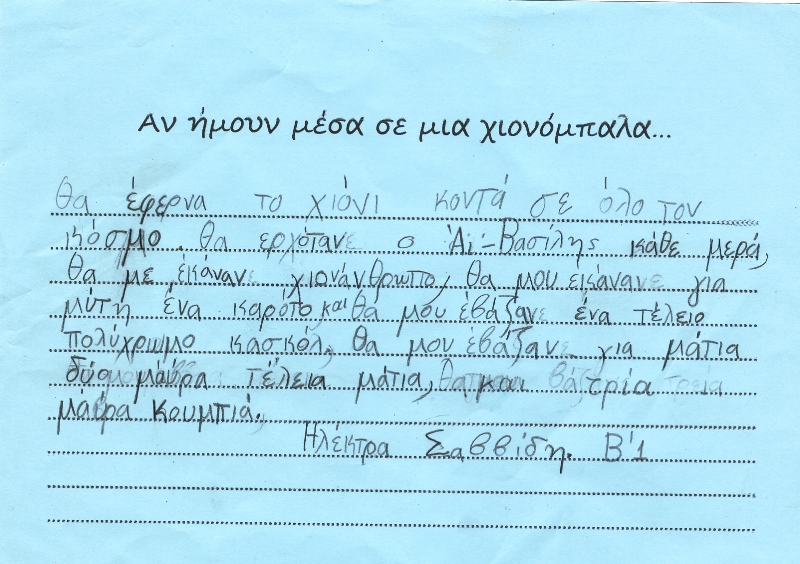 Αν ήμουν μέσα σε μια χιονόμπαλα...
Θα έφερνα το χιόνι κοντά σε όλο τον
κόσμο. Θα ερχότανε ο Άι-Βασίλης κάθε μερά,
θα με εκάνανε χιονάνθρωπο, θα μου εικάνανε για
μύτη ένα καρότο και θα μου έβάζανε ένα τέλειο
πολύχρωμο κασκόλ, θα μου έβάζανε για μάτια
δύο μαύρα τέλεια μάτια, και τρία
μάυρα κουμπιά.
Ηλέκτρα Σαββίδη. Β'1